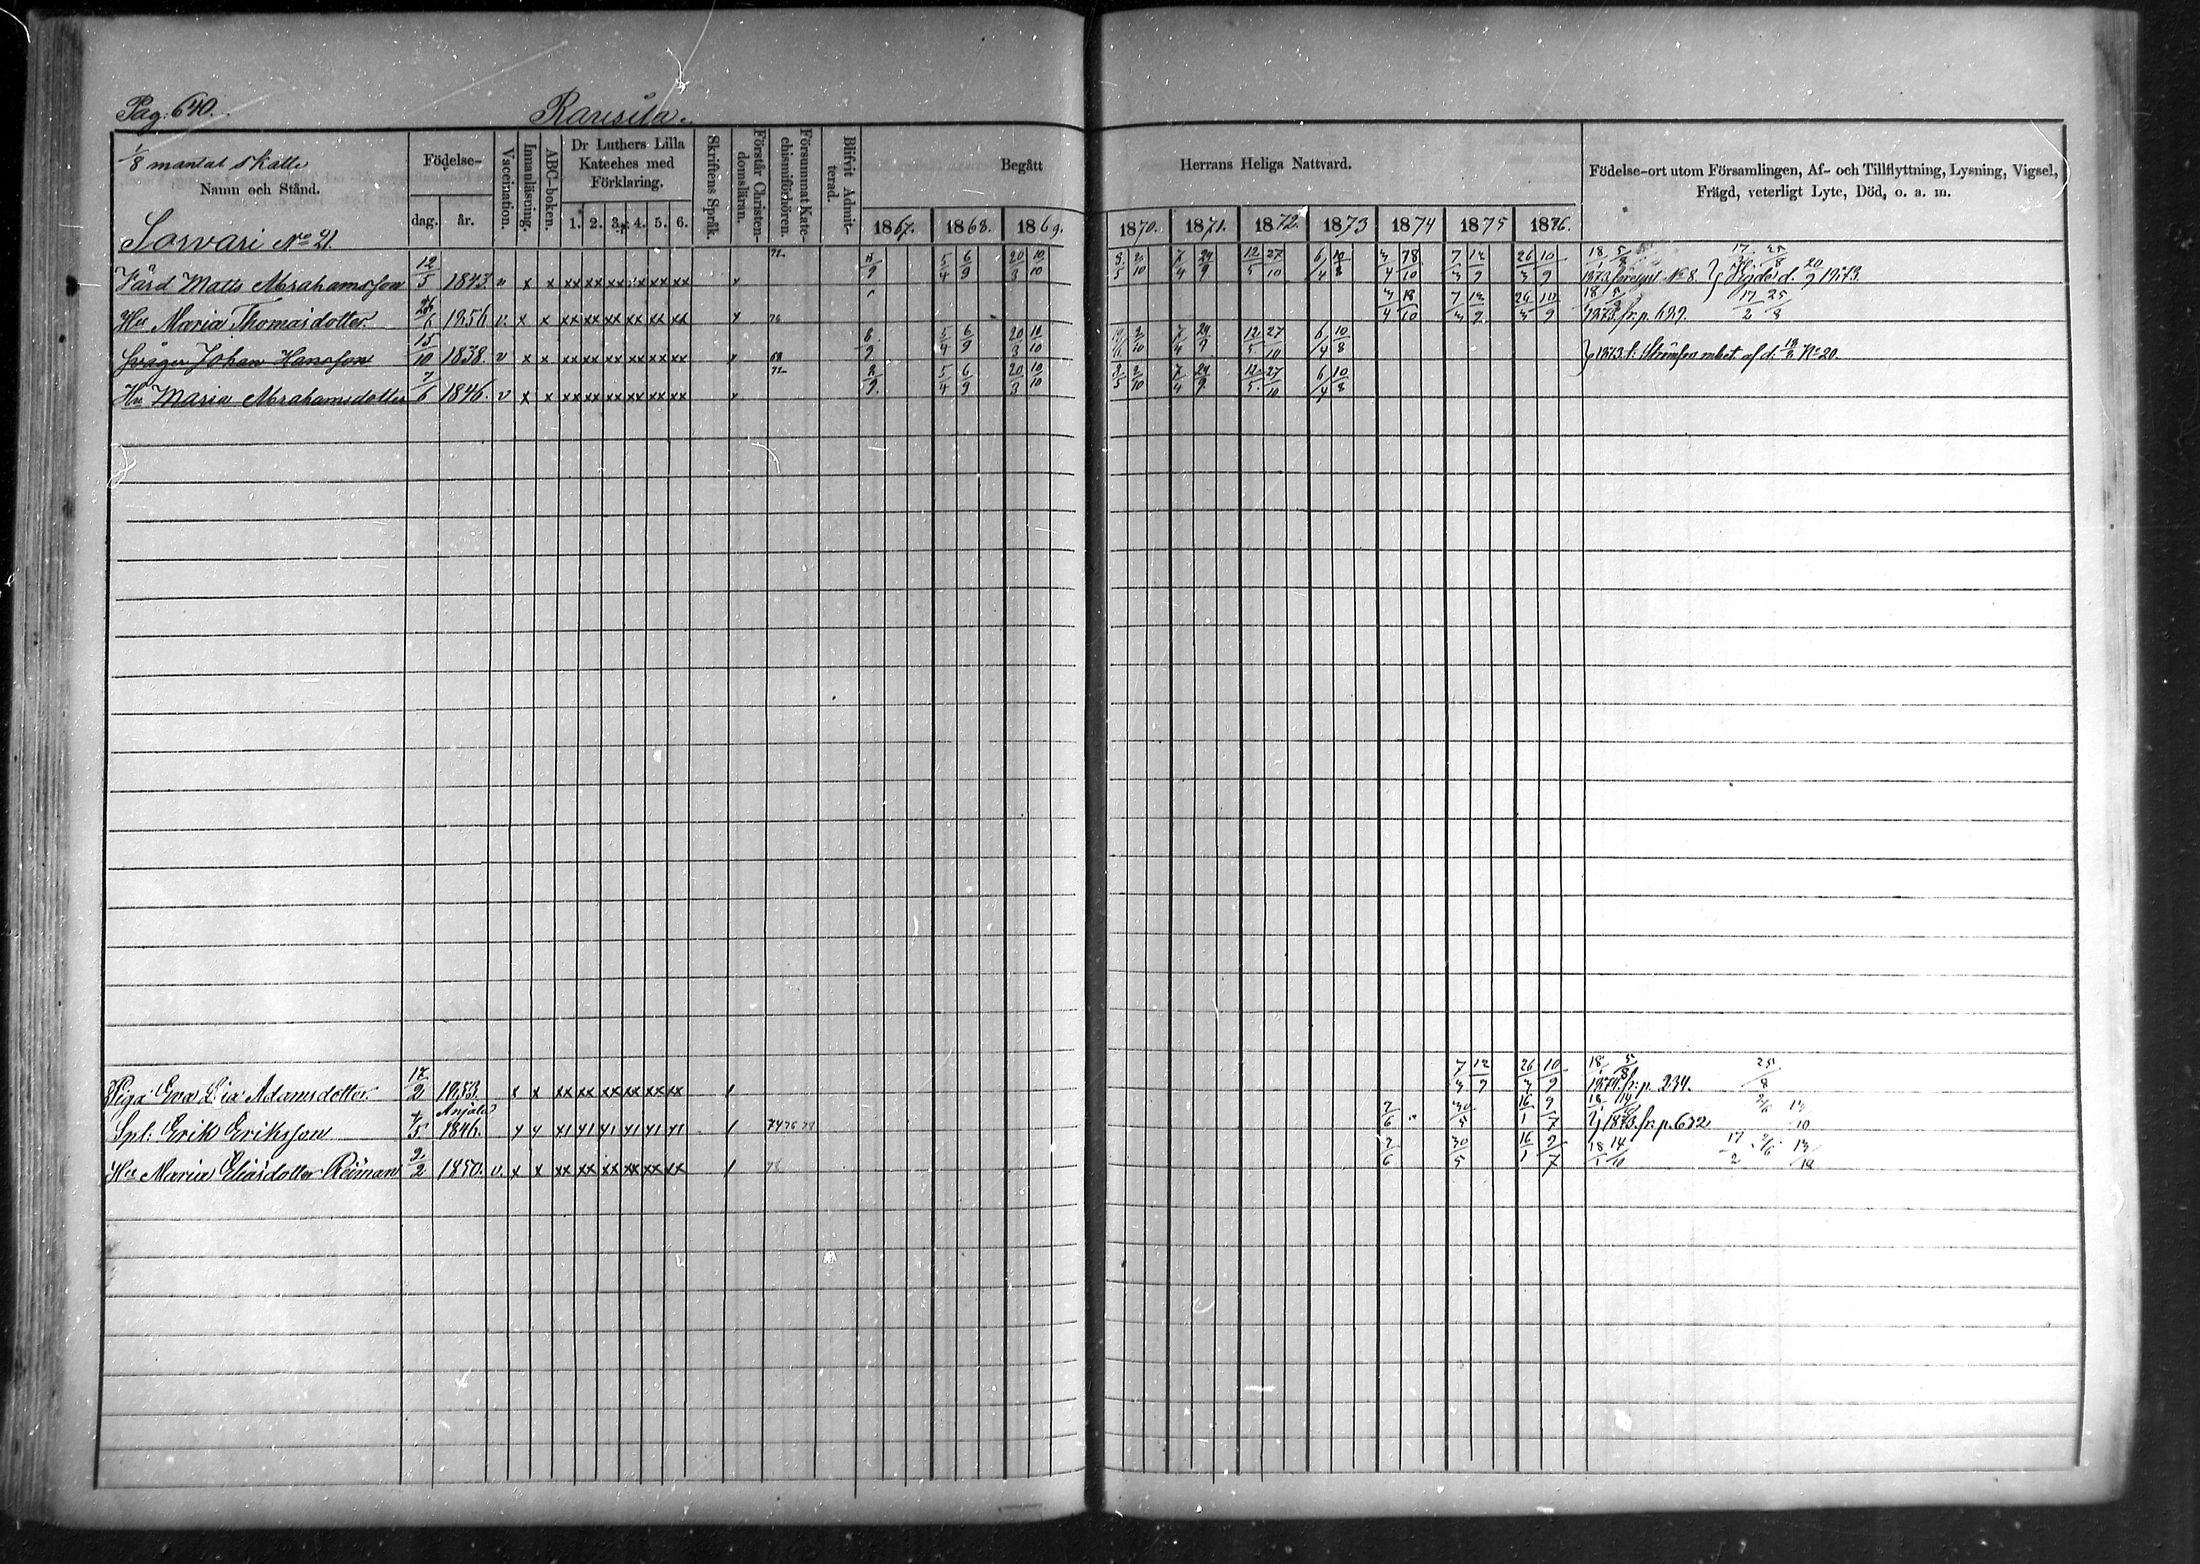 Pag: 640.
Rausila.
1/8 mantal skatte
Namn och Stånd.
Födelse-
dag. år.
Vaccination.
Innanläsning.
ABC-boken.
Dr Luthers Lilla
Kateches med
Förklaring.
1. 2. 3. 4. 5. 6.
Skriftens Språk.
Förstår Christen-
domsläran.
Försummat Kate-
chismiförhören.
Blifvit Admit-
terad.
Begått Herrans Heliga Nattvard.
1867. 1868. 1869. 1870. 1871. 1872. 1873 1874 1875 1876.
Födelse-ort utom Församlingen, Af- och Tillflyttning, Lysning, Vigsel,
Frägd, veterligt Lyte, Död, o. a. m.
Sorvari No 21.
Värd Matts Abrahamsson 12/5 1843. v x x xx xx xx xx xx xx 72 5/4 6/9 20/3 10/10 3/5 2/10 7/4 24/9 12/5 27/10 6/4 10/8 3/4 18/10 7/3 12/9 26/3 10/9 1873 No 8. 20/9 1873.
Hu Maria Thomasdotter 1856 v. x x xx xx xx xx xx xx 76 3/4 18/10 7/3 12/9 26/3 10/9 1873. fr. p. 639. 17/2 25/8
Svåger Johan Hansson 15/10 1838. v x x xx xx xx xx xx xx 68 8/9 5/4 6/9 20/3 10/10 2/10 7/4 24/9 12/5 27/10 6/4 10/8 1873 No 20.
Hu Maria Abrahamsdotter 7/6 1846. v x x xx xx xx xx xx xx 72 8/9. 5/4 6/9 20/3 10/10 3/5 2/10 7/4 24/9 12/5 27/10 6/4 10/8
Piga Eva Lisa Adamsdotter 17/2 1853. x x xx xx xx xx xx xx 7/3 12/9 26/3 10/9 1874. fr. p. 234. 25/8
Anjala
Spl: Erik Eriksson 1846. 74 76 78 2/6 30/5 16/1 9/7 1873. fr. p. 632
Hu Maria Eliasdotter Reiman 2/2 1850. v. x x xx xx xx xx xx xx 2/6 30/5 16/1 9/7 18/1 14/10 17/2